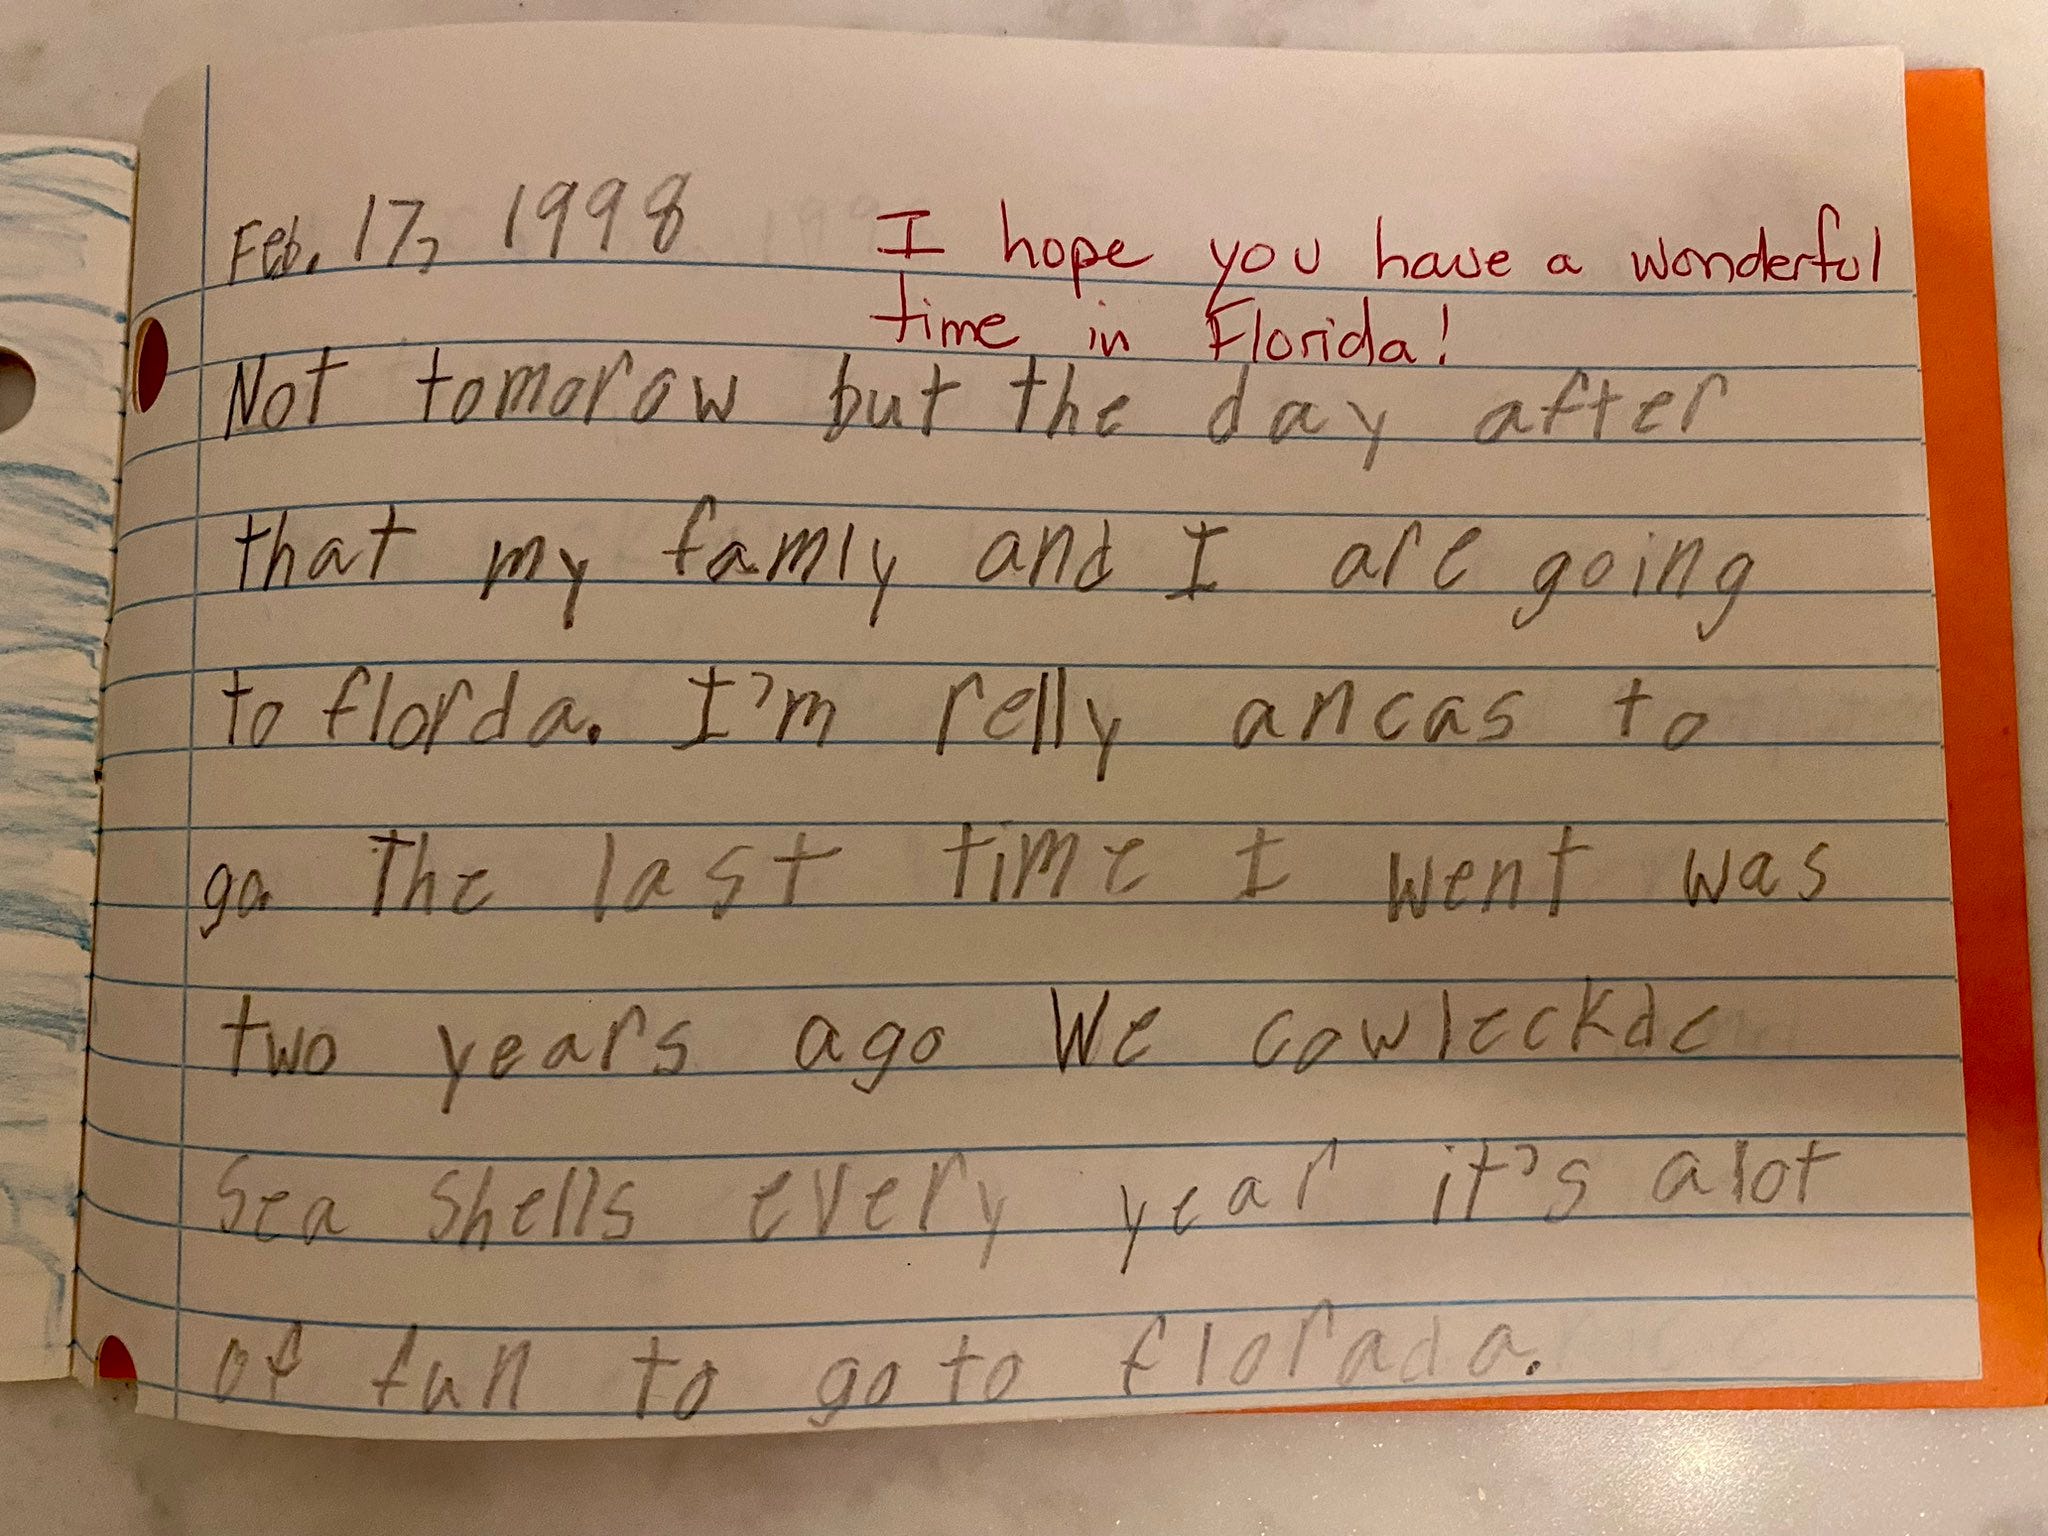 Feb. 17, 1998
I hope you have a wonderful
time in Florida!
Not tomorow but the day after
that my famly and I are going
to florda. I'm relly ancas to
go. The last time I went was
two years ago We cowleckde
Sea shells every year it's alot
of fun to go to florada.